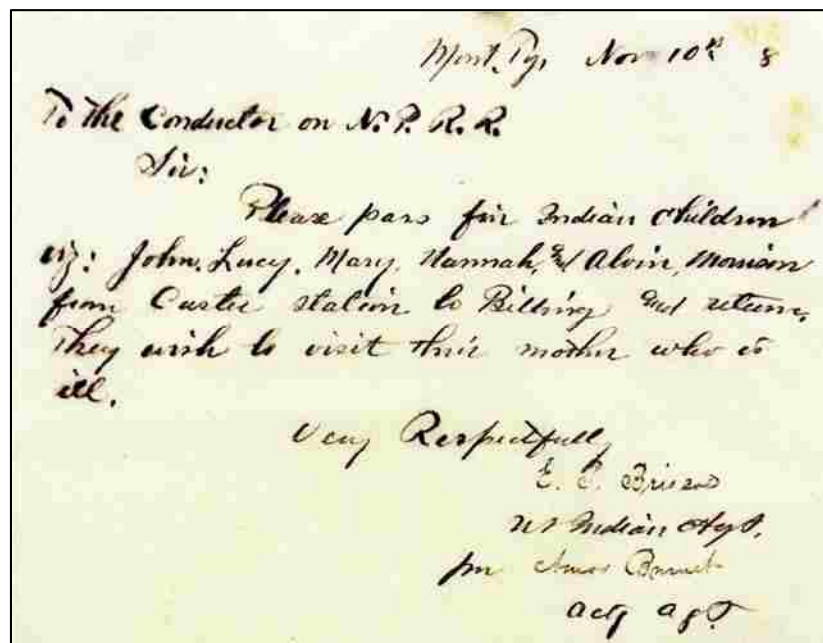 Mont. Ty. Nov 10th 8
To the Conductor on N. P. R. R.
Sir:
Please pass five Indian Children
viz: John, Lucy, Mary, Hannah, and Alvin, Morrison
from Custer station to Billings and return.
They wish to visit their mother who is
ill.
Very Respectfully
E. P. Briscoe
US Indian Agt.
per Amos
actg agt